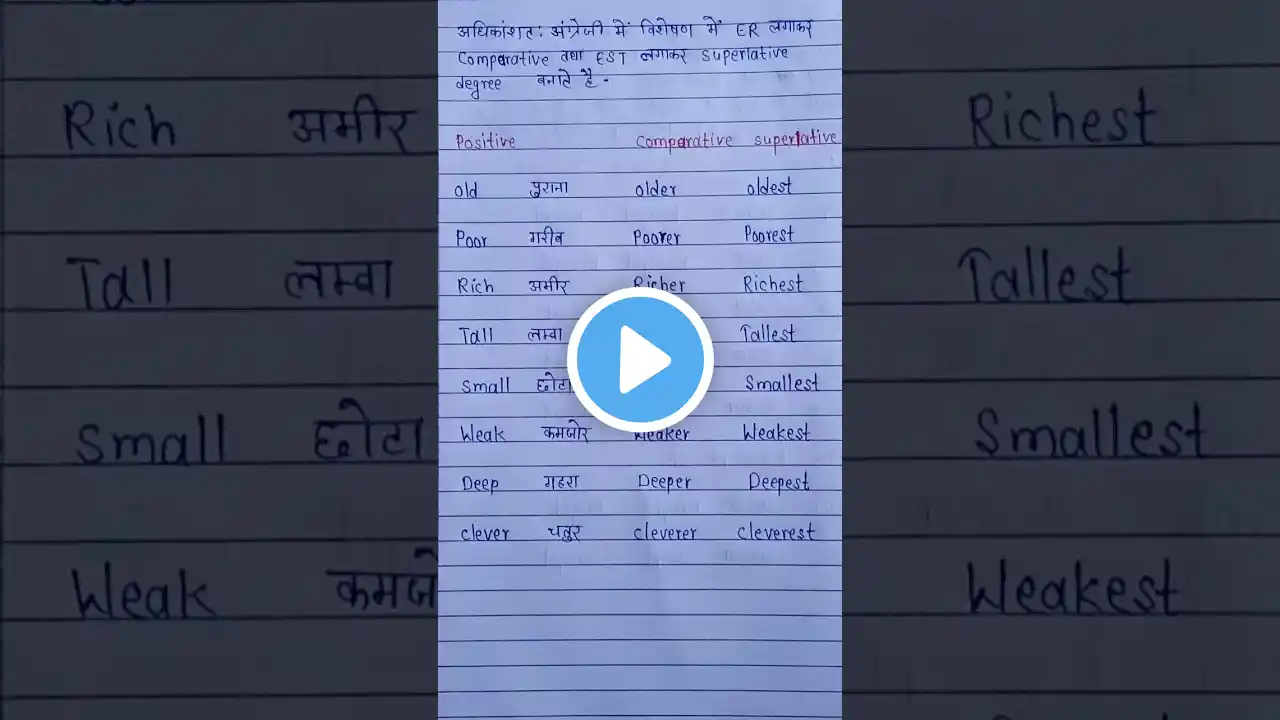 अधिकांशत: अंग्रेजी में विशेषण में ER लगाकर
Comparative तथा EST लगाकर superlative
degree बनाते है -
Positive comparative superlative
old पुराना older oldest
Poor गरीब Poorer Poorest
Rich अमीर Richer Richest
Tall लम्बा Tallest
small छोटा Smallest
Weak कमजोर Weaker Weakest
Deep गहरा Deeper Deepest
clever चतुर cleverer cleverest
Rich अमीर Richest
Tall लम्बा Tallest
small छोटा Smallest
Weak Weakest